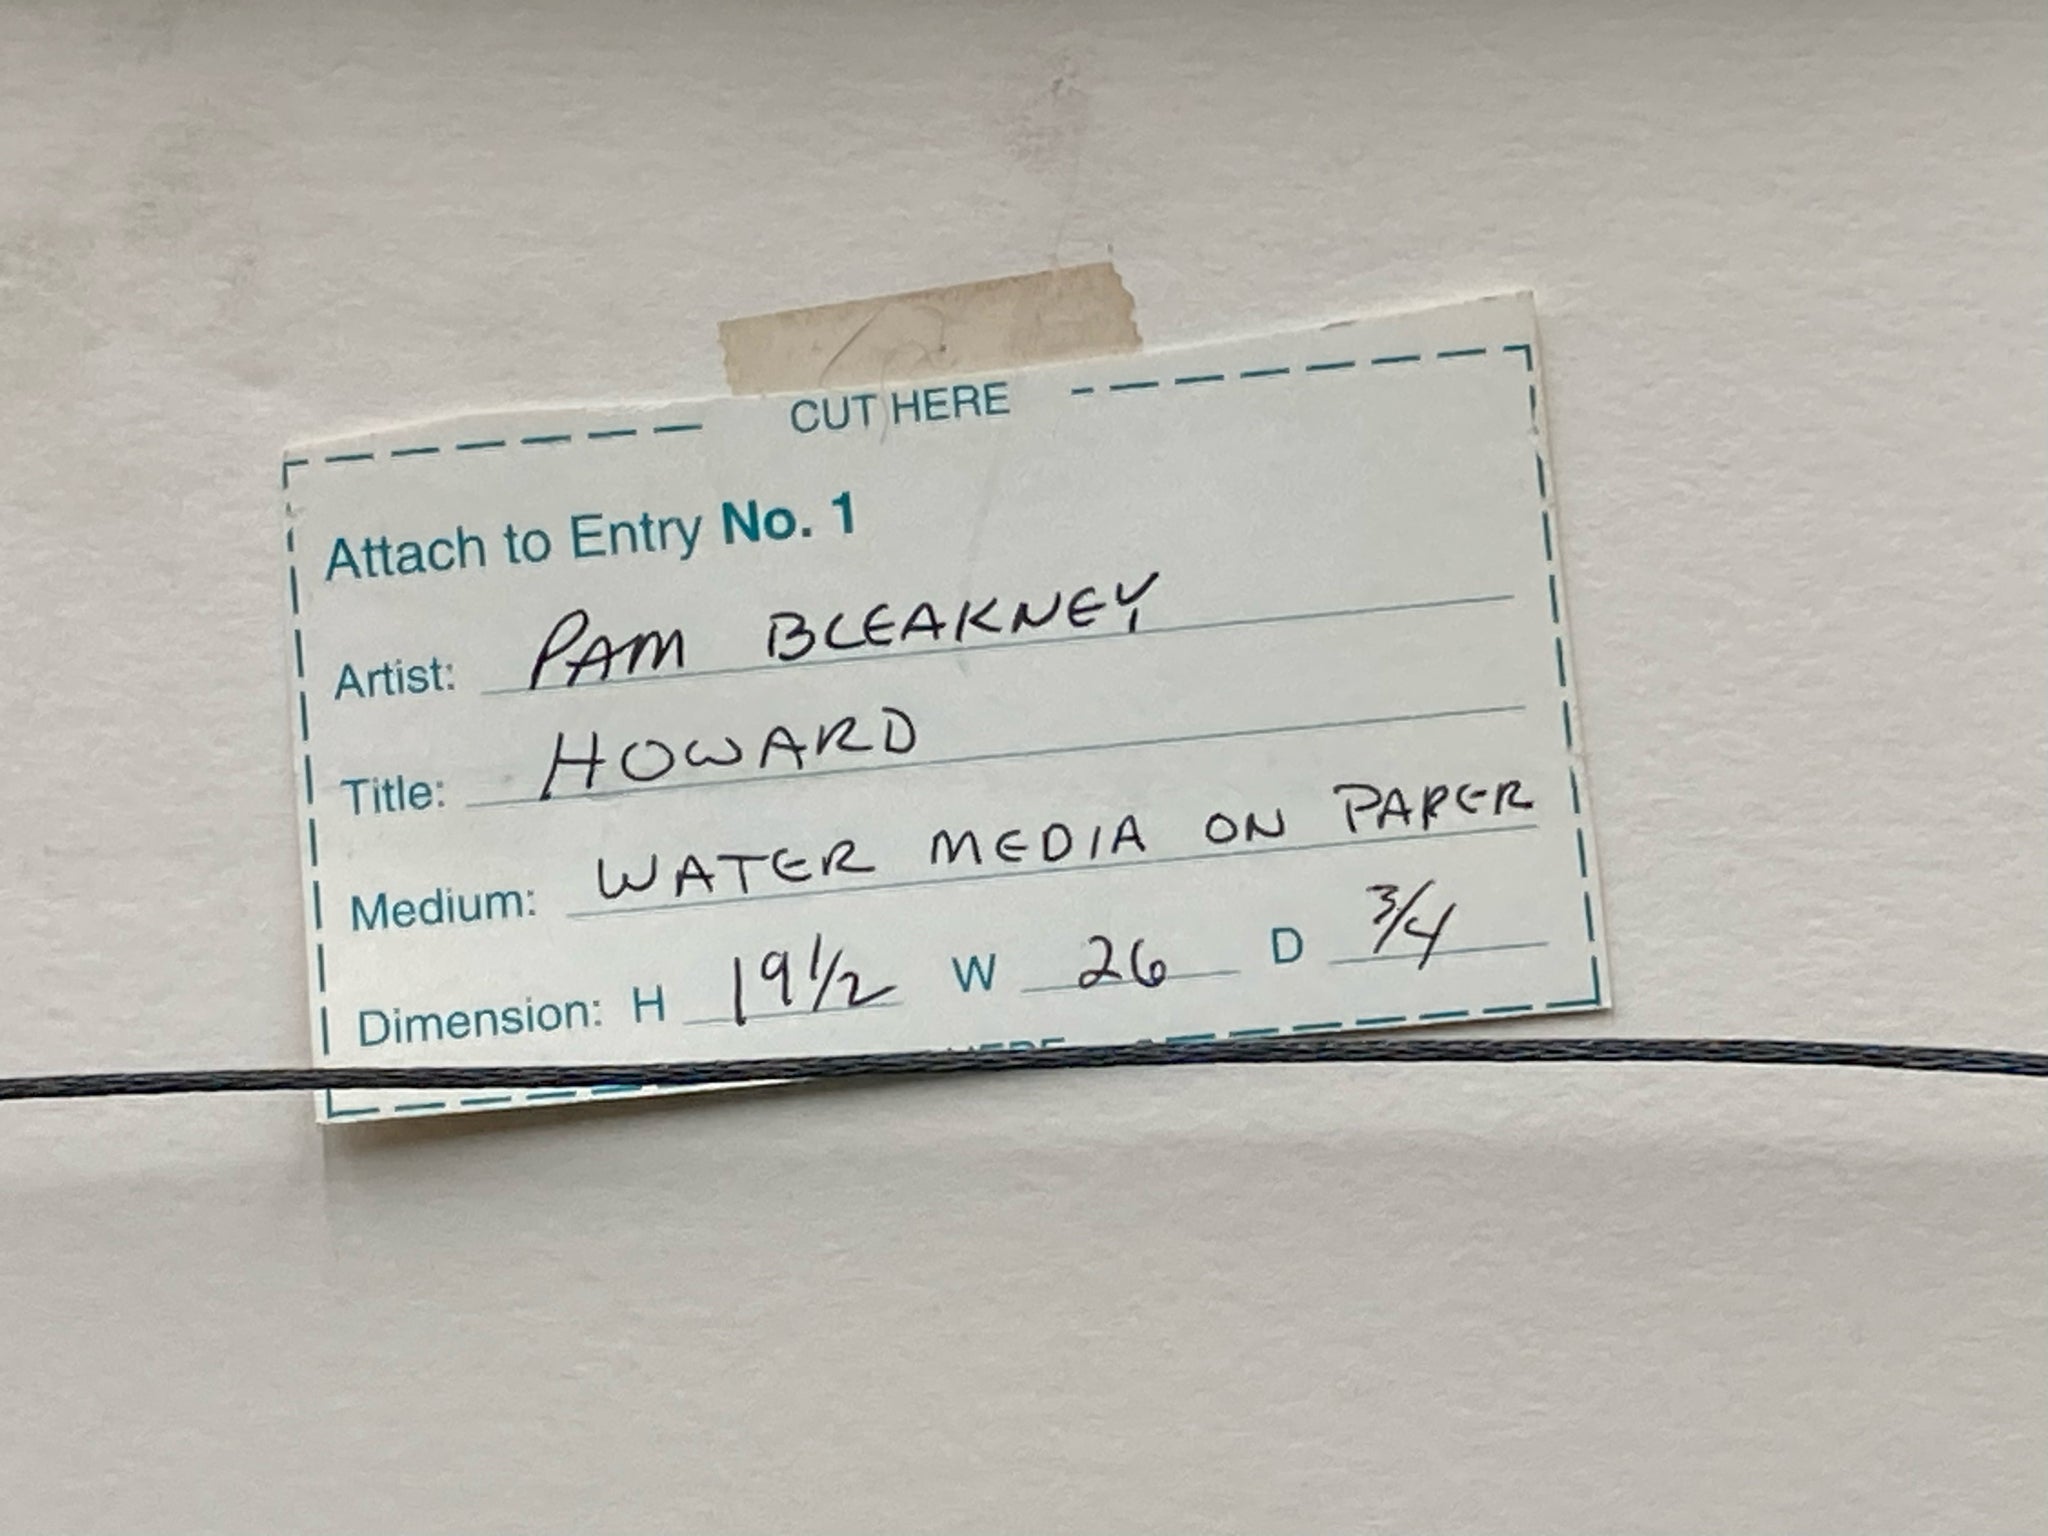 CUT HERE
Attach to Entry No. 1
Artist: PAM BLEAKNEY
Title: HOWARD
Medium: WATER MEDIA ON PAPER
Dimension: H 19 1/2 W 26 D 3/4
HERE